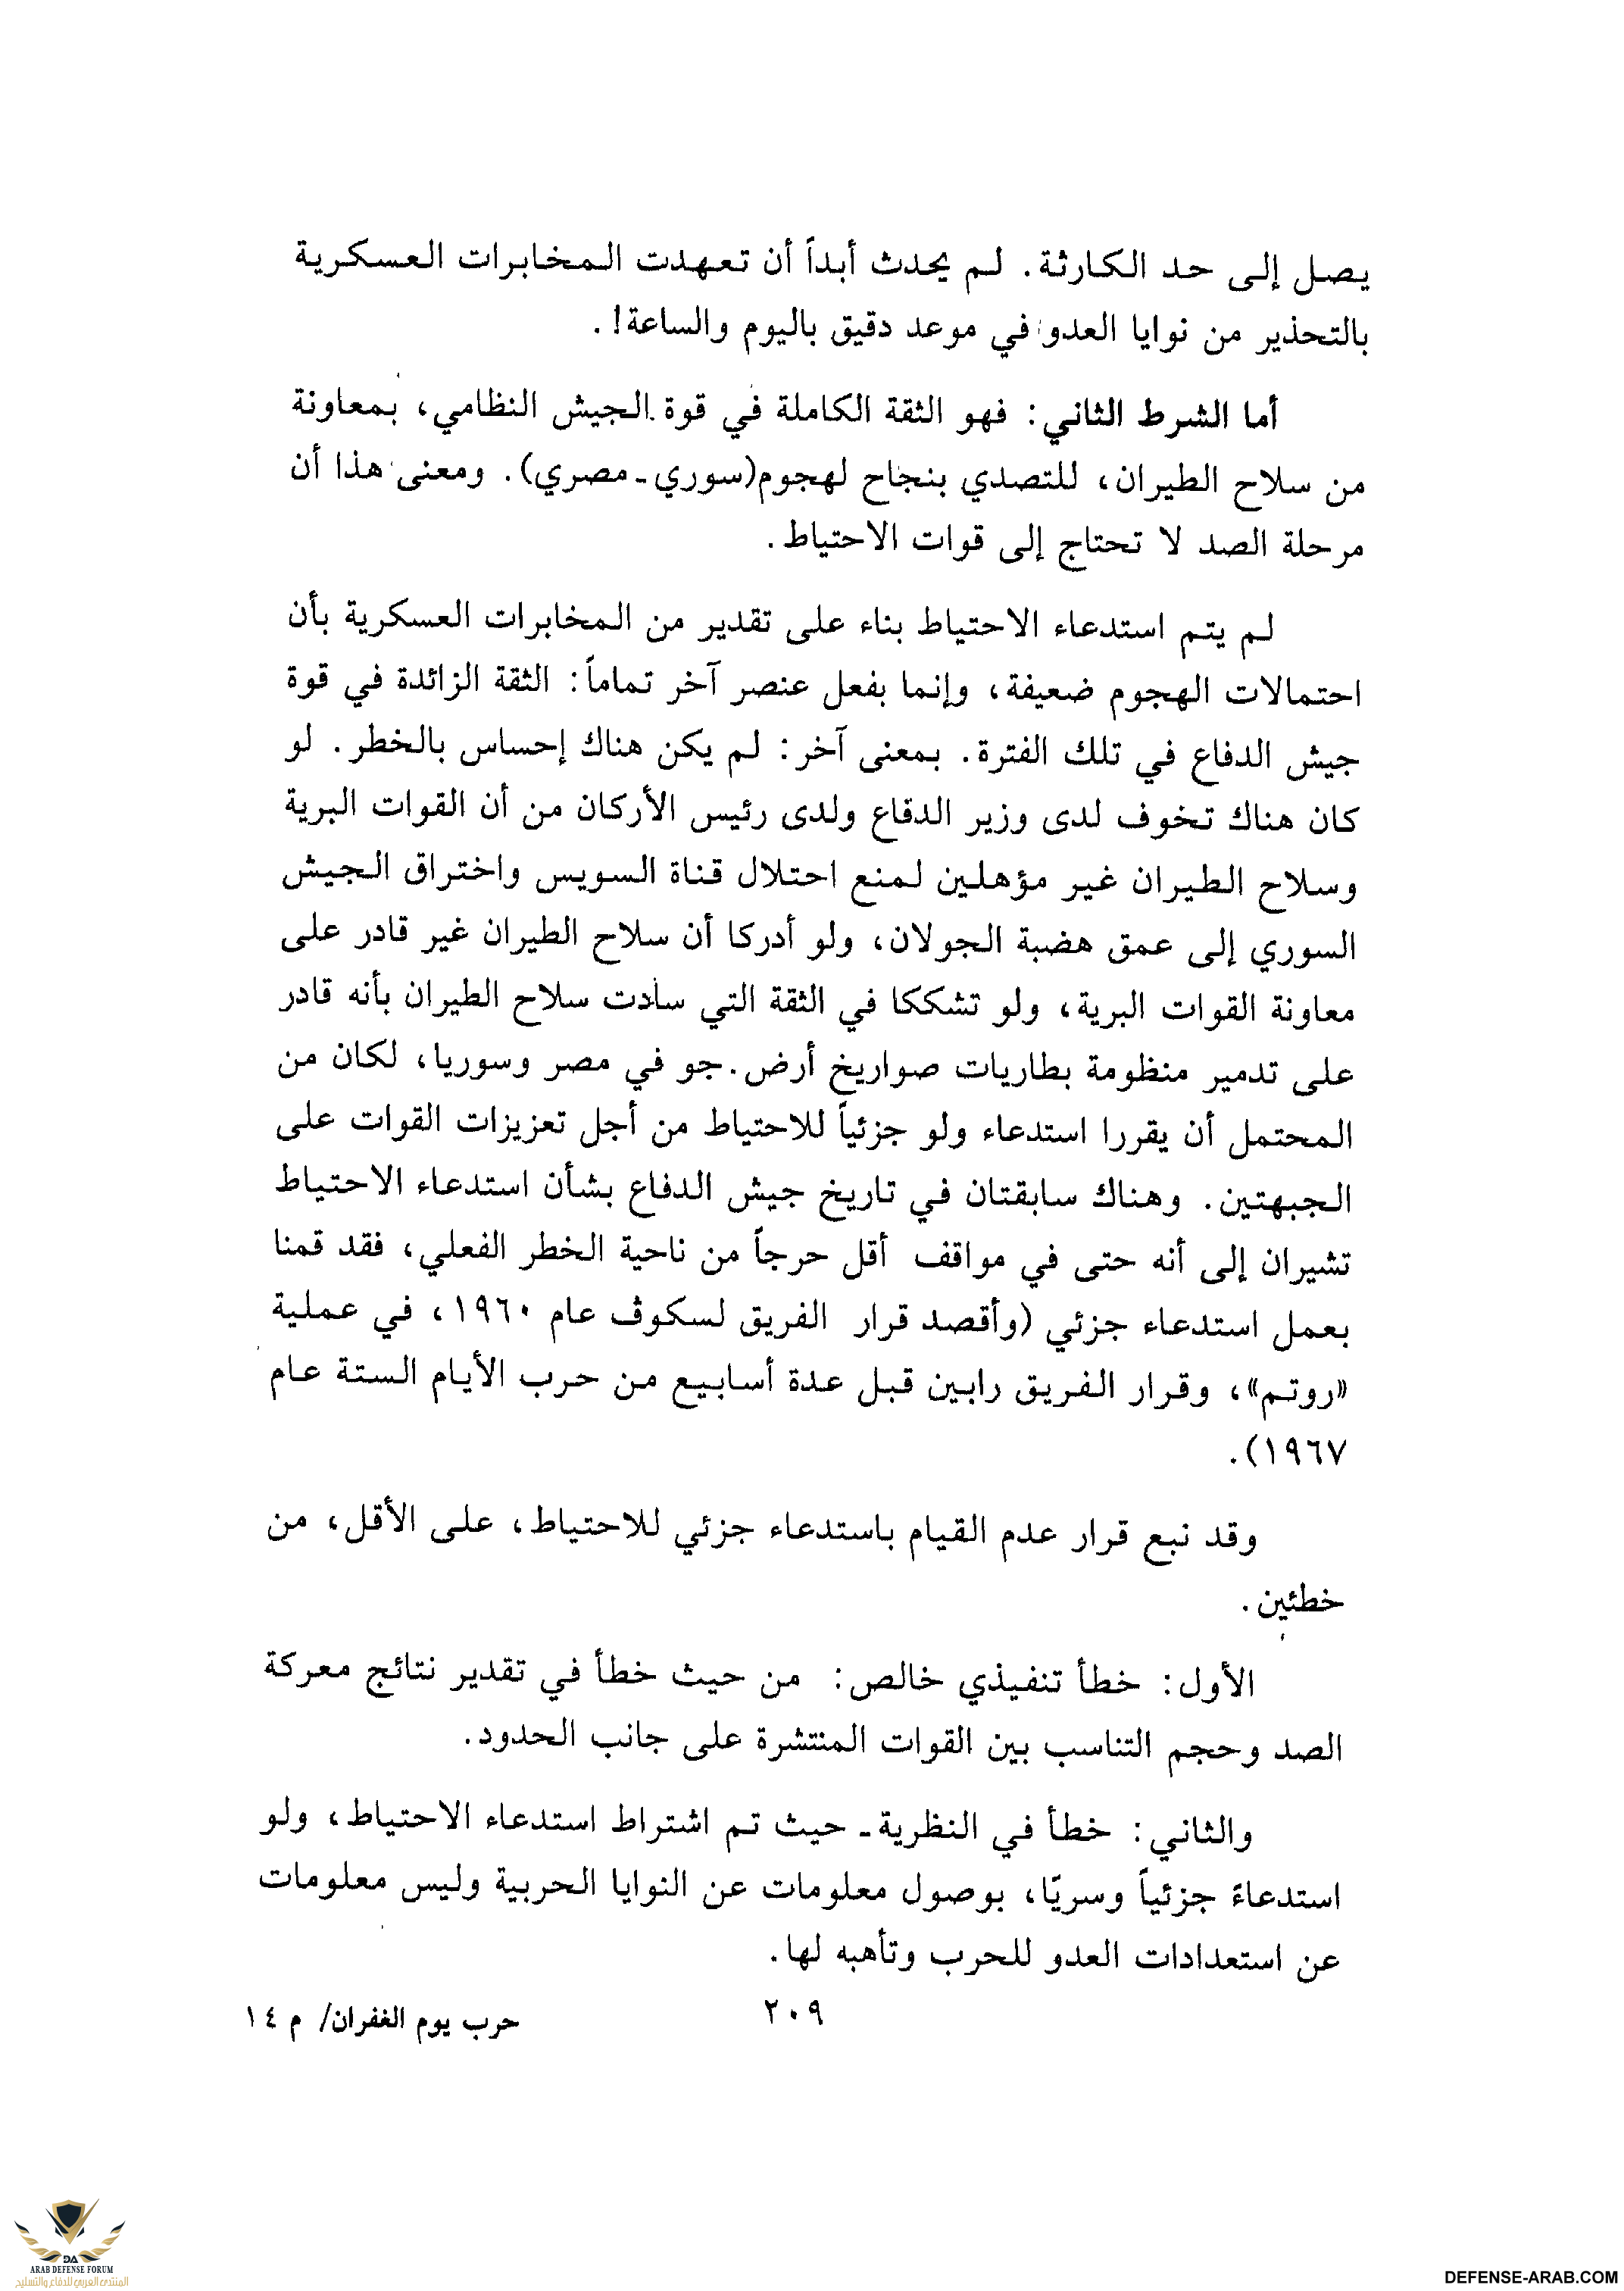 يصل إلى حد الكارثة. لم يحدث أبداً أن تعهدت المخابرات العسكرية
بالتحذير من نوايا العدو في موعد دقيق باليوم والساعة! .
أما الشرط الثاني: فهو الثقة الكاملة في قوة الجيش النظامي، بمعاونة
من سلاح الطيران، للتصدي بنجاح لهجوم(سوري ـ مصري). ومعنى هذا أن
مرحلة الصد لا تحتاج إلى قوات الاحتياط.
لم يتم استدعاء الاحتياط بناء على تقدير من المخابرات العسكرية بأن
احتمالات الهجوم ضعيفة، وإنما بفعل عنصر آخر تماماً: الثقة الزائدة في قوة
جيش الدفاع في تلك الفترة. بمعنى آخر: لم يكن هناك إحساس بالخطر. لو
كان هناك تخوف لدى وزير الدفاع ولدى رئيس الأركان من أن القوات البرية
وسلاح الطيران غير مؤهلين لمنع احتلال قناة السويس واختراق الجيش
السوري إلى عمق هضبة الجولان، ولو أدركا أن سلاح الطيران غير قادر على
معاونة القوات البرية، ولو تشككا في الثقة التي سادت سلاح الطيران بأنه قادر
على تدمير منظومة بطاريات صواريخ أرض.جو في مصر وسوريا، لكان من
المحتمل أن يقررا استدعاء ولو جزئياً للاحتياط من أجل تعزيزات القوات على
الجبهتين. وهناك سابقتان في تاريخ جيش الدفاع بشأن استدعاء الاحتياط
تشيران إلى أنه حتى في مواقف أقل حرجاً من ناحية الخطر الفعلي، فقد قمنا
بعمل استدعاء جزئي (وأقصد قرار الفريق لسكوڤ عام ١٩٦٠، في عملية
«روتم»، وقرار الفريق رابين قبل عدة أسابيع من حرب الأيام الستة عام
١٩٦٧).
وقد نبع قرار عدم القيام باستدعاء جزئي للاحتياط، على الأقل، من
خطئين.
الأول: خطأ تنفيذي خالص: من حيث خطأ في تقدير نتائج معركة
الصد وحجم التناسب بين القوات المنتشرة على جانب الحدود.
والثاني: خطأ في النظرية ـ حيث تم اشتراط استدعاء الاحتياط، ولو
استدعاءً جزئياً وسريًا، بوصول معلومات عن النوايا الحربية وليس معلومات
عن استعدادات العدو للحرب وتأهبه لها.
٢٠٩
حرب يوم الغفران/ م ١٤
DA
ARAB DEFENSE FORUM
المنتدى العربي للدفاع والتسليح
DEFENSE-ARAB.COM